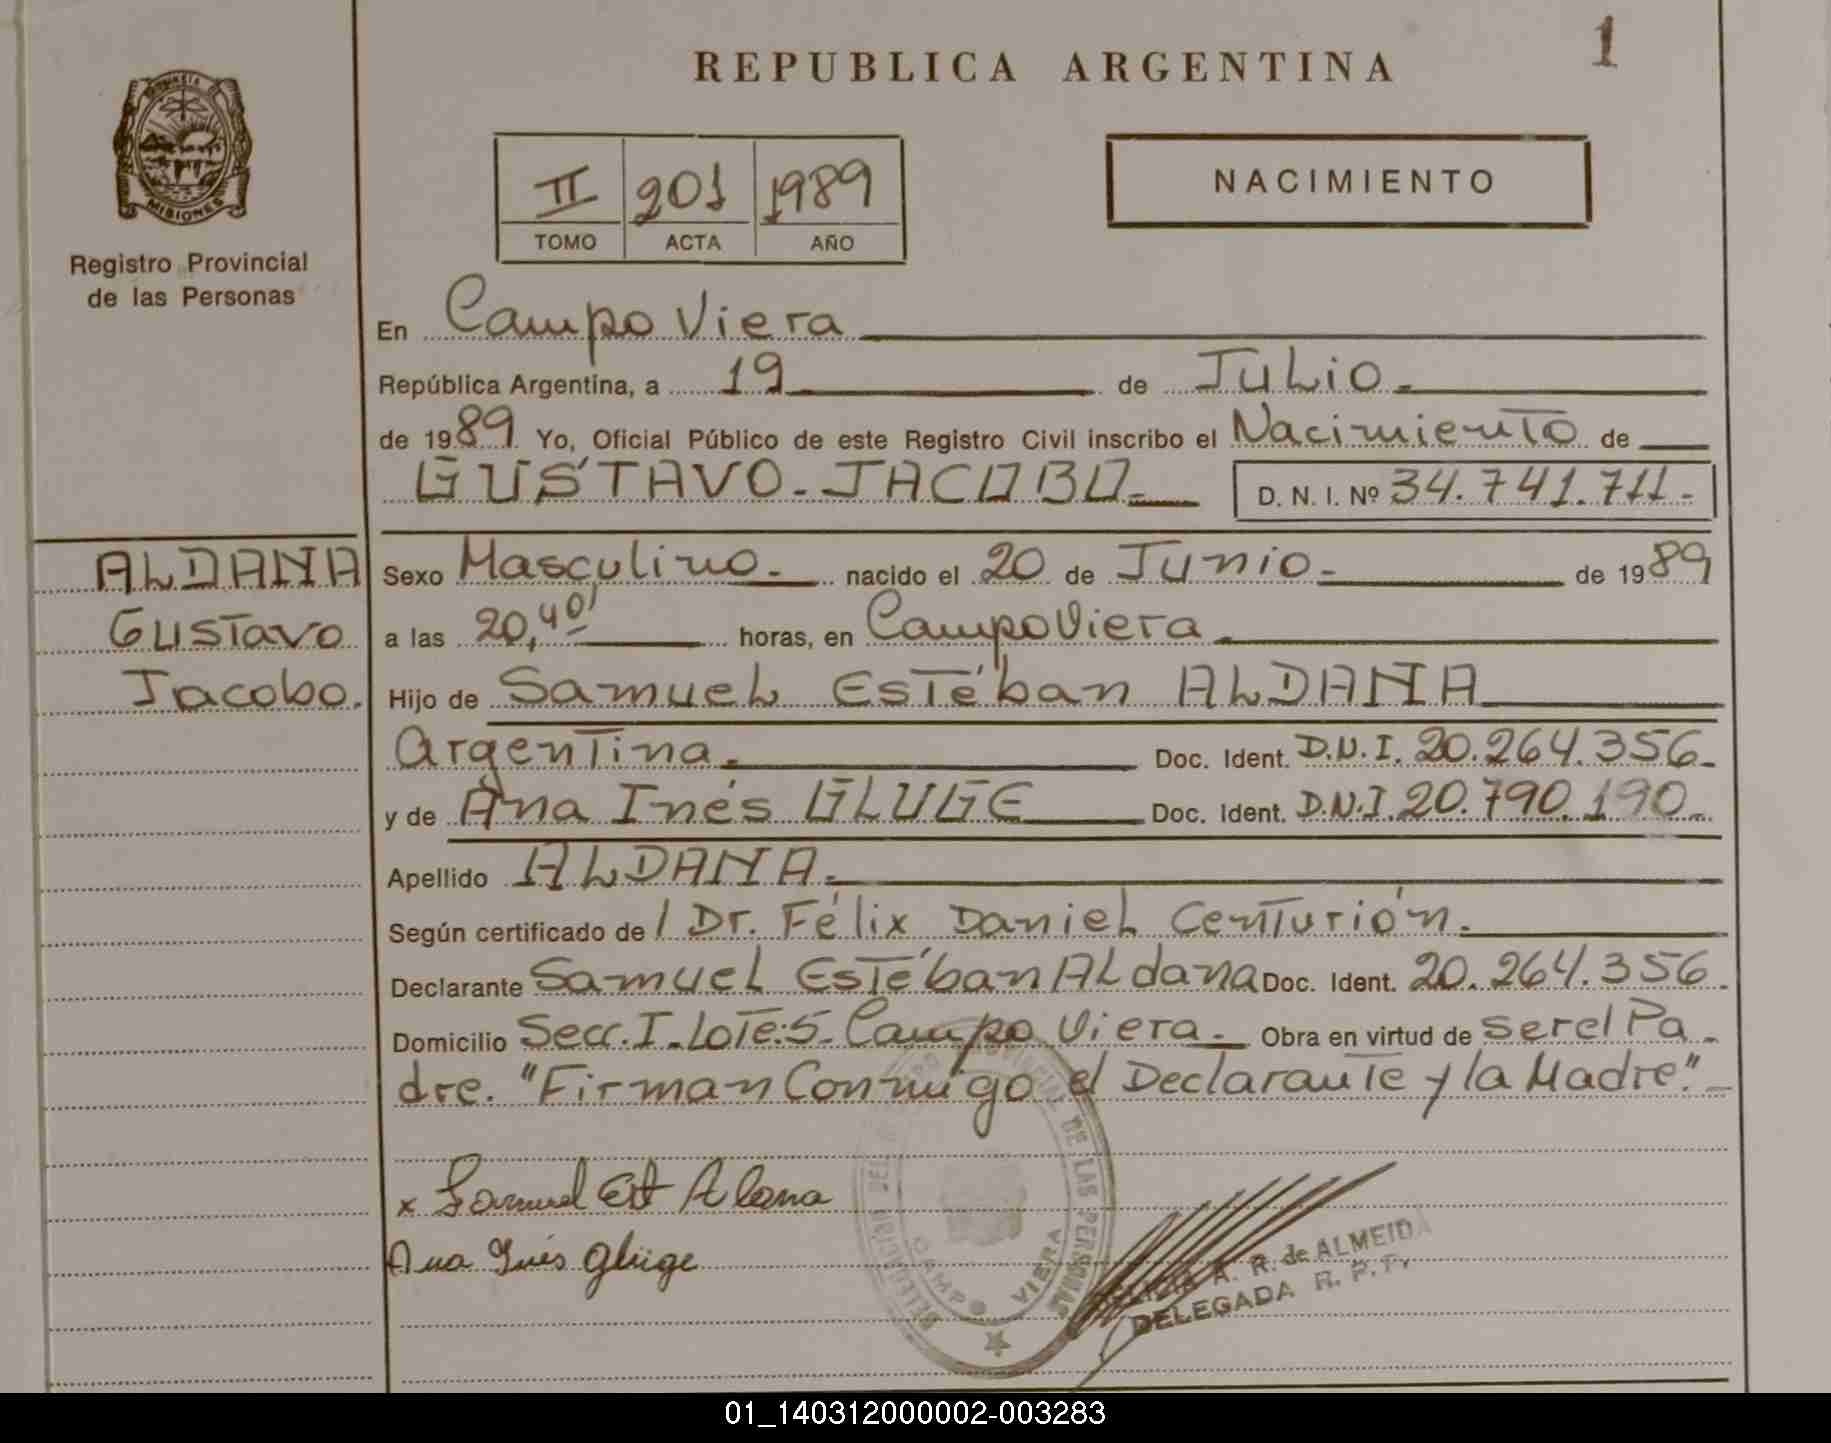 REPUBLICA ARGENTINA
1
PROVINCIA
MISIONES
Registro Provincial
de las Personas
II 201 1989
TOMO ACTA AÑO
NACIMIENTO
En Campo Viera
República Argentina, a 19 de Julio.
de 1989 Yo, Oficial Público de este Registro Civil inscribo el Nacimiento de
GUSTAVO-JACOBO- D. N. I. Nº 34.741.711-
ALDANA
Gustavo
Jacobo.
Sexo Masculino- nacido el 20 de Junio- de 1989
a las 20,40' horas, en Campo Viera
Hijo de Samuel Estéban ALDANA
Argentina. Doc. Ident. D.N.I. 20.264.356-
y de Ana Inés GLUGE Doc. Ident. D.N.I. 20.790.190-
Apellido ALDANA.
Según certificado de / Dr. Félix Daniel Centurión.
Declarante Samuel Estéban Aldana Doc. Ident. 20.264.356
Domicilio Secc. I. Lote:5- Campo Viera- Obra en virtud de ser el Pa-
dre. "Firman Conmigo el Declarante y la Madre."-
x Samuel Est Alana
Ana Inés Glüge
PROVINCIAL DE LAS PERSONAS
CAMPO VIERA
A. R. de ALMEIDA
DELEGADA R. P. P.
01_140312000002-003283